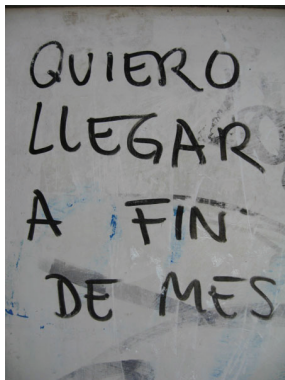 QUIERO
LLEGAR
A FIN
DE MES